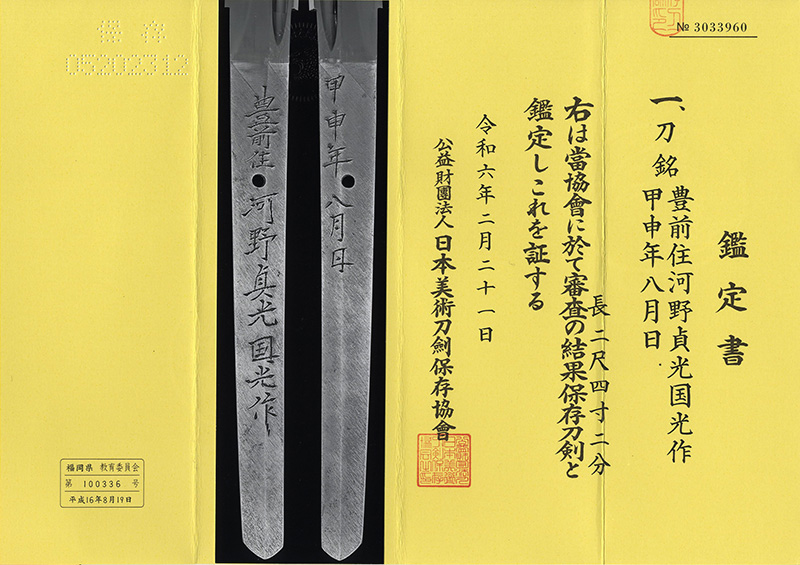 № 3033960
鑑定書
一、刀 銘 豊前住河野貞光国光作
甲申年八月日
長 二尺四寸二分
右は當協會に於て審査の結果保存刀剣と
鑑定しこれを証する
令和六年二月二十一日
公益財團法人 日本美術刀劍保存協會
甲申年八月日
豊前住河野貞光国光作
保存
05202312
福岡県 教育委員会
第 100336 号
平成16年8月19日